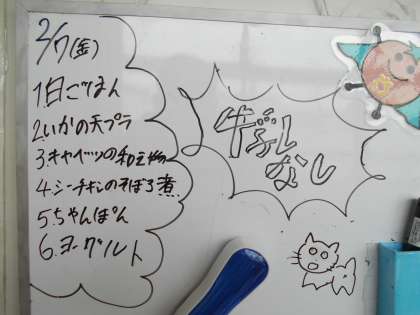 2/7(金)
1白ごはん
2.いかの天プラ
3キャベツの和え物
4.シーチキンのそぼろ煮
5.ちゃんぽん
6.ヨーグルト
牛ぶし
なし